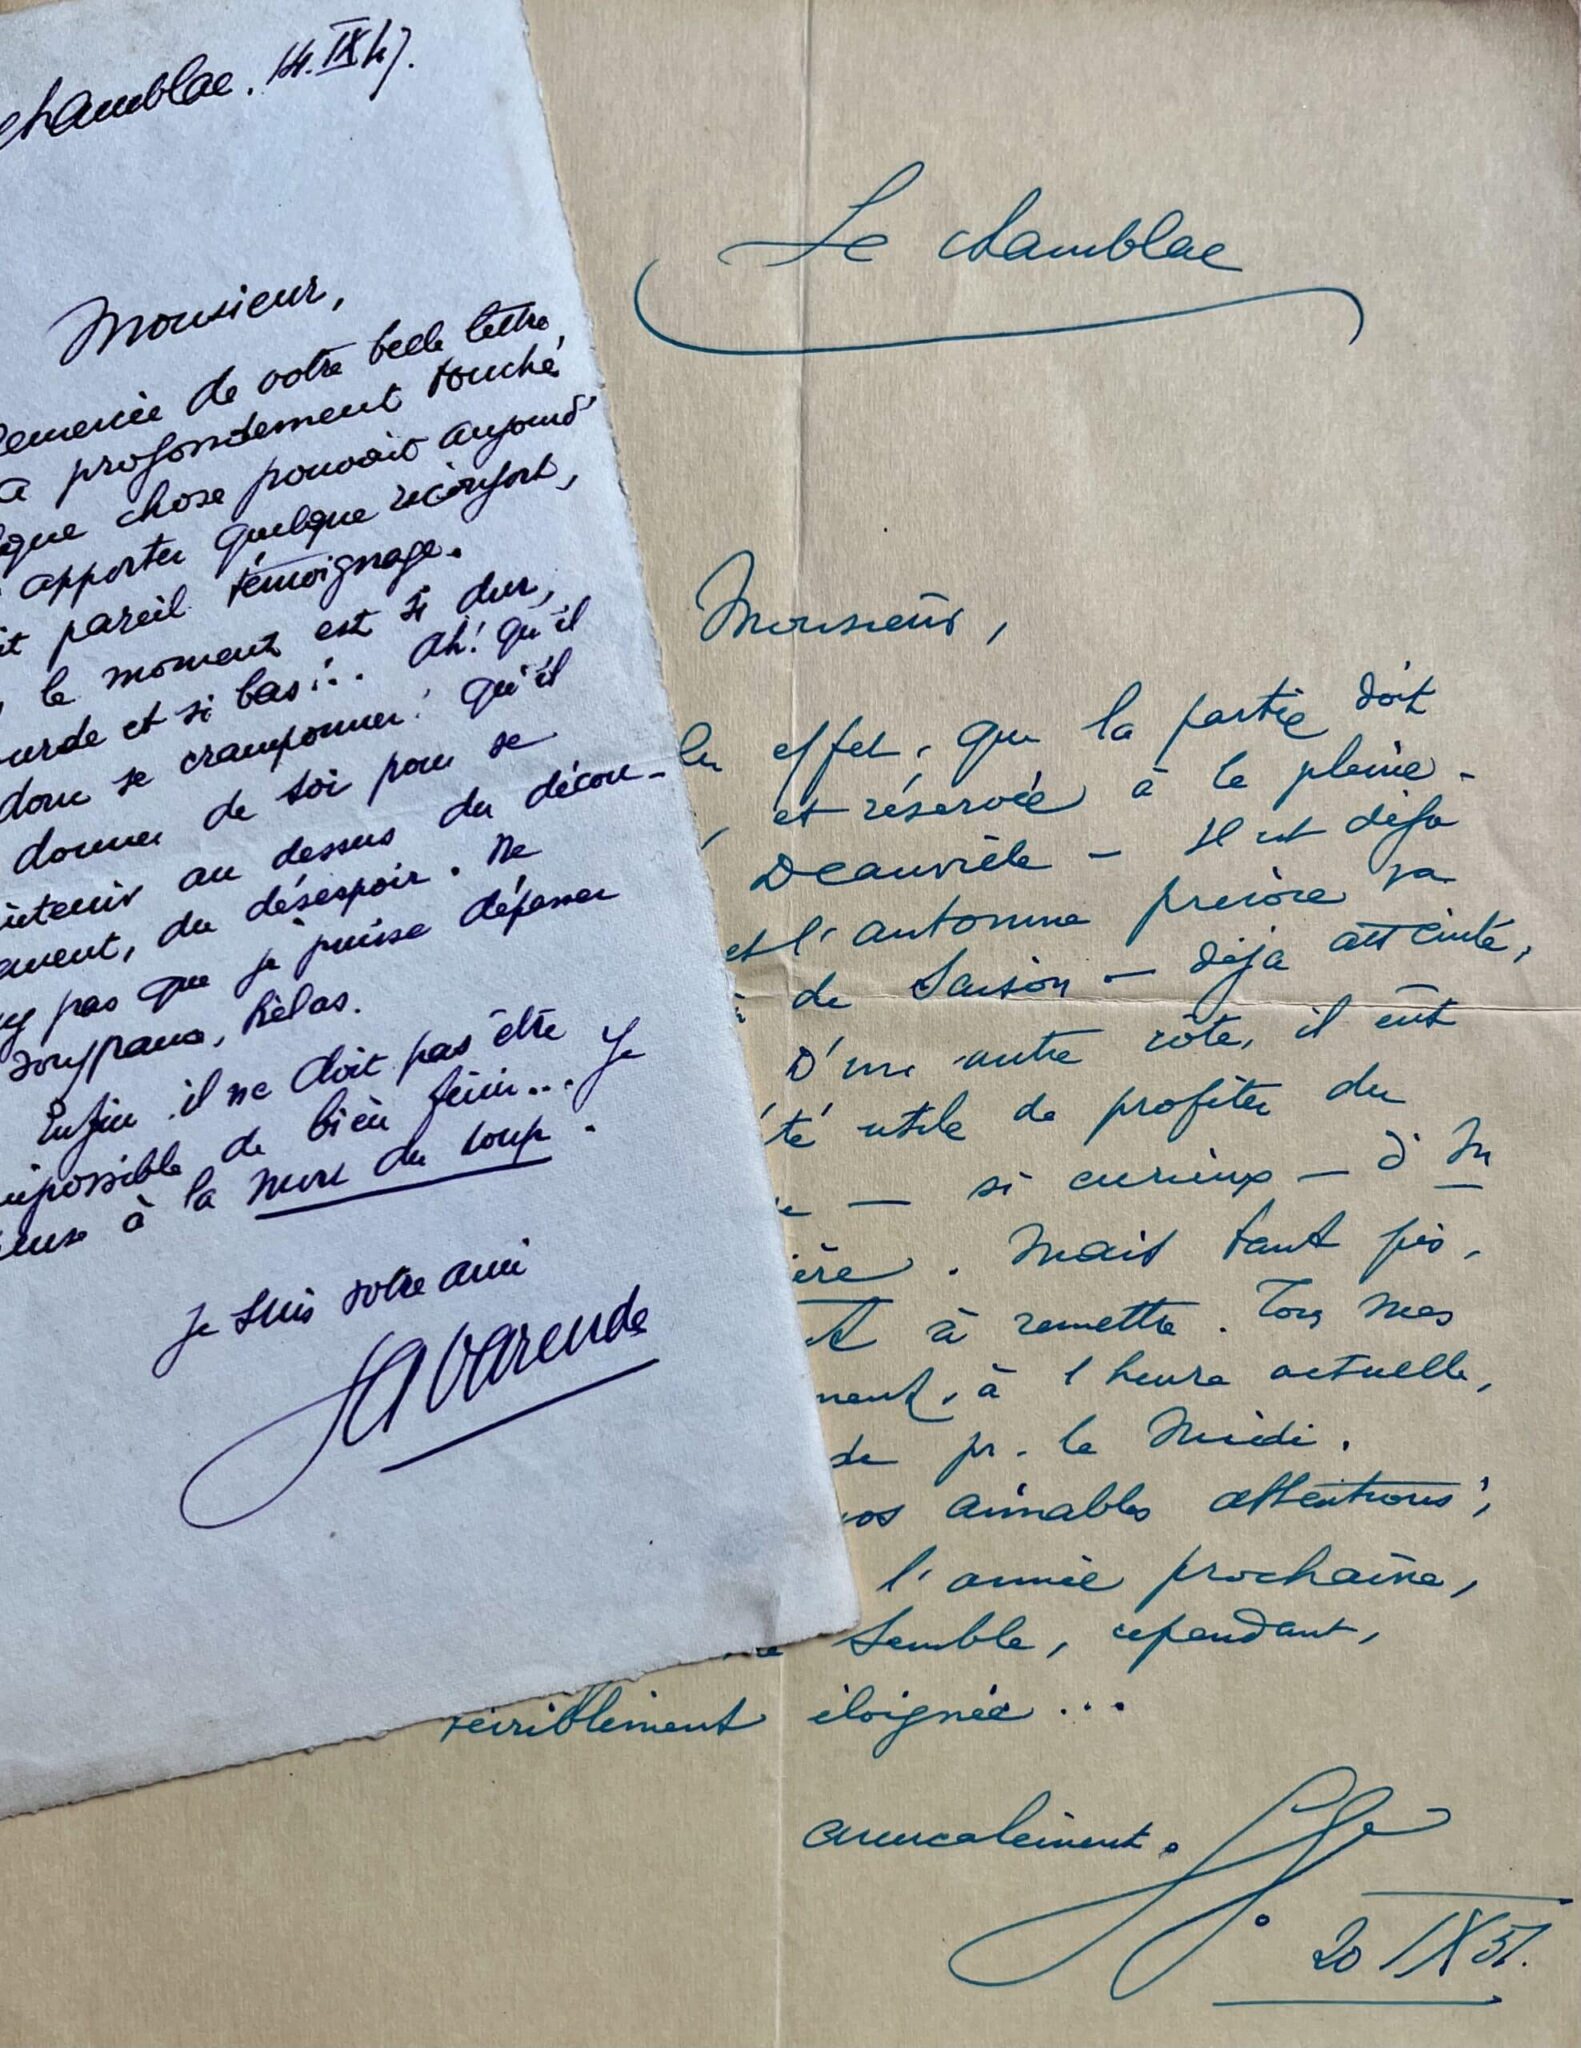 chamblac. 14. IX 47.
Monsieur,
de votre belle lettre
a profondement touché
que chose pouvait aujourd'
apporter quelque réconfort,
pareil témoignage.
le moment est si dur,
et si bas!... Ah! qu'il
donc se cramponner! qu'il
donner de soi pour se
au dessus du décou-
du désespoir. Ne
pas que je puisse dépasser
hélas.
Enfin il ne doit pas être
impossible de bien finir... Je
à la Mort du Loup.
Je suis votre ami
La Varende
Le Chamblac
Monsieur,
en effet, que la partie doit
et réservée à la pleine-
Deauville – Il est déjà
et l'automne sa
de Saison – déjà atteinte,
D'un autre côté, il eut
été utile de profiter du
– si curieux – d'
Mais tant pis,
à remettre. Tous mes
à l'heure actuelle,
pr. le Midi.
vos aimables attentions;
l'année prochaine,
Semble, cependant,
terriblement éloignée...
amicalement.
20 IX 51.